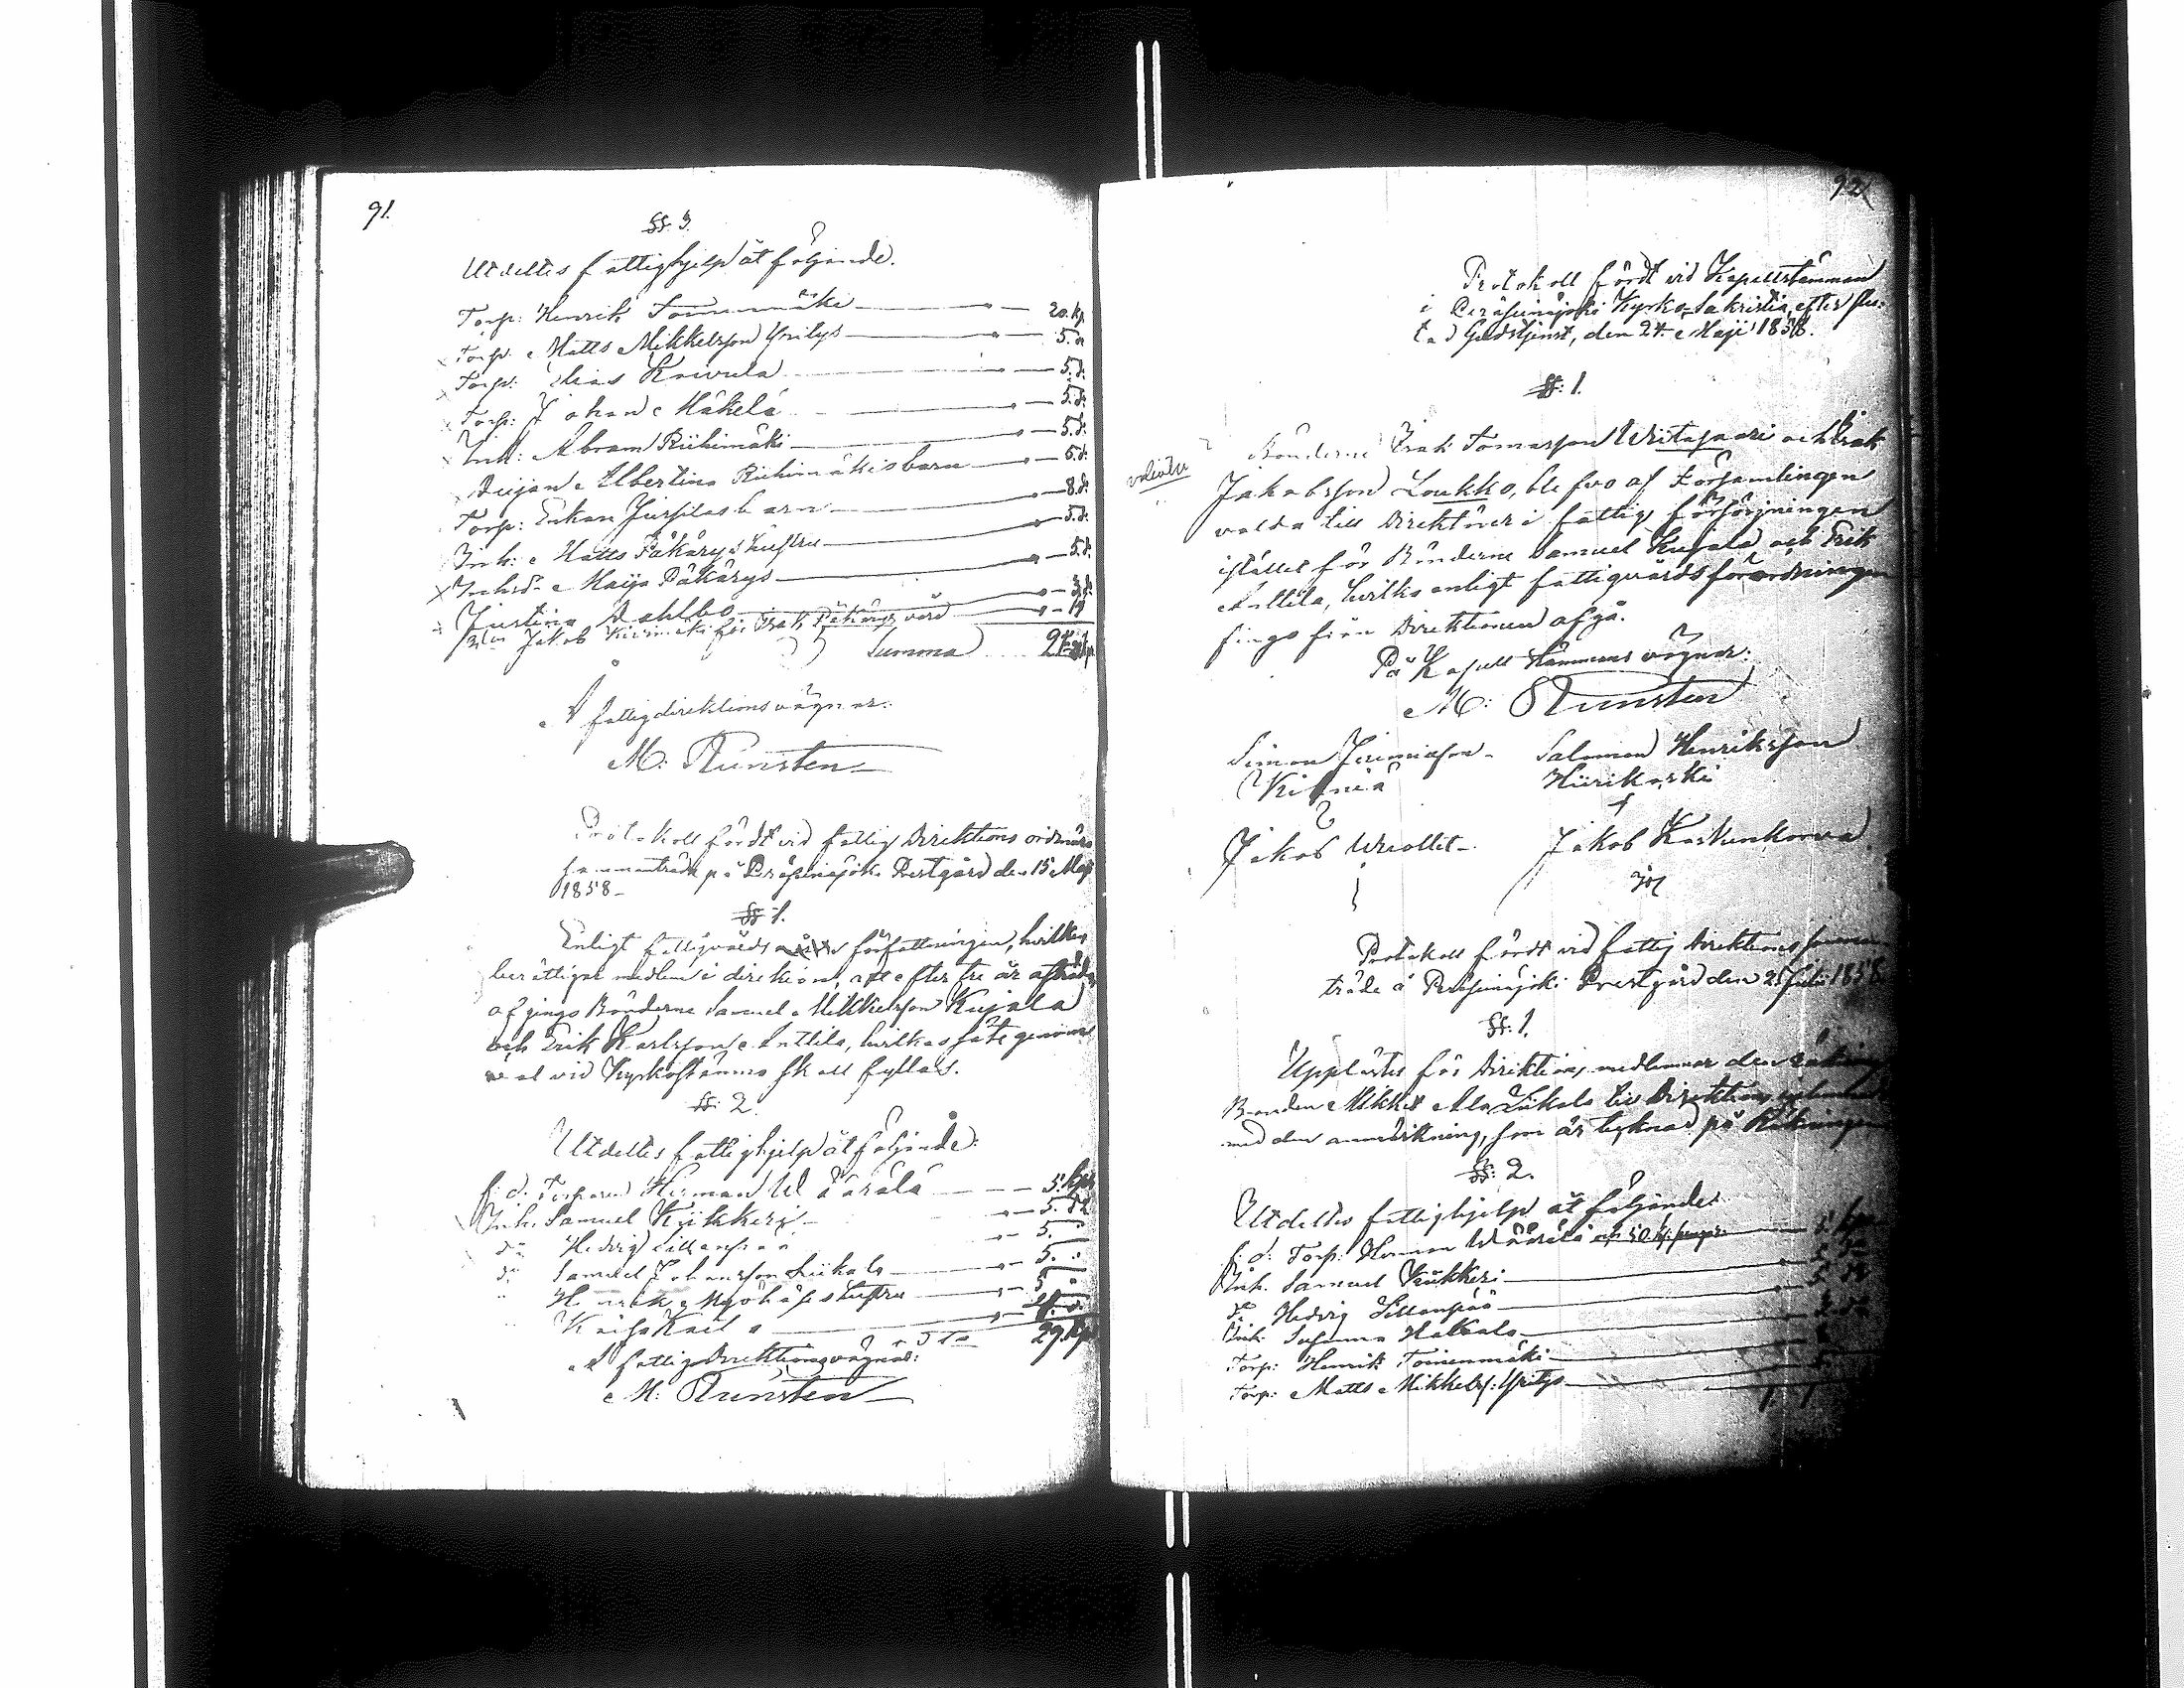 91.
§§. 3.
Utdeltes fattighjelp åt följande.
Torp: Henrik Toinenmäki 20. kp.
Torp: Matts Mikkelsson Yrilys 5. d
Torp: Elias Koivula 5. d:
Torp: Johan Mäkelä 5. d:
Inh: Abram Riihimäki 5. d:
Pigan Albertina Riihimäkis barn 6. d:
Torp: Erkan Jurpilas barn 8. d:
Inh: Matts Päkärys hustru 5. d:
Inhs: Maija Päkärys 5. d:
Justina Dahlbo 3. d:
Jakob för Isak Päkärys vård 19
Summa
Å fattigdirektions vägnar:
M: Runsten
Protokoll fördt vid fattig Direktions ordinära
sammanträde på Peräseinäjoki Prestgård den 15 Maji
1858
§§. 1.
Enligt fattigvårds författningen, hvilken
berättigar medlem i direktion, att efter tre år afträda
afgingo Bönderne Samuel Mikkelsson Kujala
och Erik Karlsson Anttila, hvilkas säte genom
val vid Kyrkostämma skall fyllas.
§§. 2.
Utdeltes fattighjelp åt följande:
f. d. Torparen Herman Wäärälä 5. kpr
Inh. Samuel Kiikkeri 5. d:
d:o Hedvig Sillanpää 5.
d:o Samuel Johansson Liikala 5.
Henrik Myöhäs hustru 5
Kaisa
29. kp
Å fattig Direktions vägnar:
M: Runsten
92
Protokoll fördt vid Kapellstämman
i Peräseinäjoki Kyrko-Sakristia, efter slu-
tad Gudstjenst, den 24. Maji 1858.
§§. 1.
valeåtu
Bönderne Isak Tomasson Writaxari och Isak
Jakobsson Loukko, blefvo af Församlingen
valda till Direktörer i fattig försörjningen
istället för Bönderne Samuel Kujala och Erik
Anttila, hvilka enligt fattigvårdsförordningen
fingo från Direktionen afgå.
På Kapell Stämmans vägnar:
M: Runsten
Simon Jeremiasson Salomon Henriksson
Kihniä Hiirikoski
Jakob Wuollet Jakob Kaskenkorva
Protokoll fördt vid fattig Direktions samman
träde å Peräseinäjoki Prestgård den 25 Juli 1858
§§. 1.
Upplästes för Direktions medlemmar den räkning
Bonden Mikkel Ala Liikala till Direktion
med den anmärkning, som är teknad på Räkningen
§§. 2.
Utdeltes fattighjelp åt följande:
f. d: Torp: Herman Wäärälä och 50 kp: pengar 5. kpr
Inh. Samuel Kiikkeri 5. d:o
d:o Hedvig Sillanpää 5 d:o
Inh: Susanna Hakkala
Torp: Henrik Toinenmäki
Torp: Matts Mikkelss: Yrilys